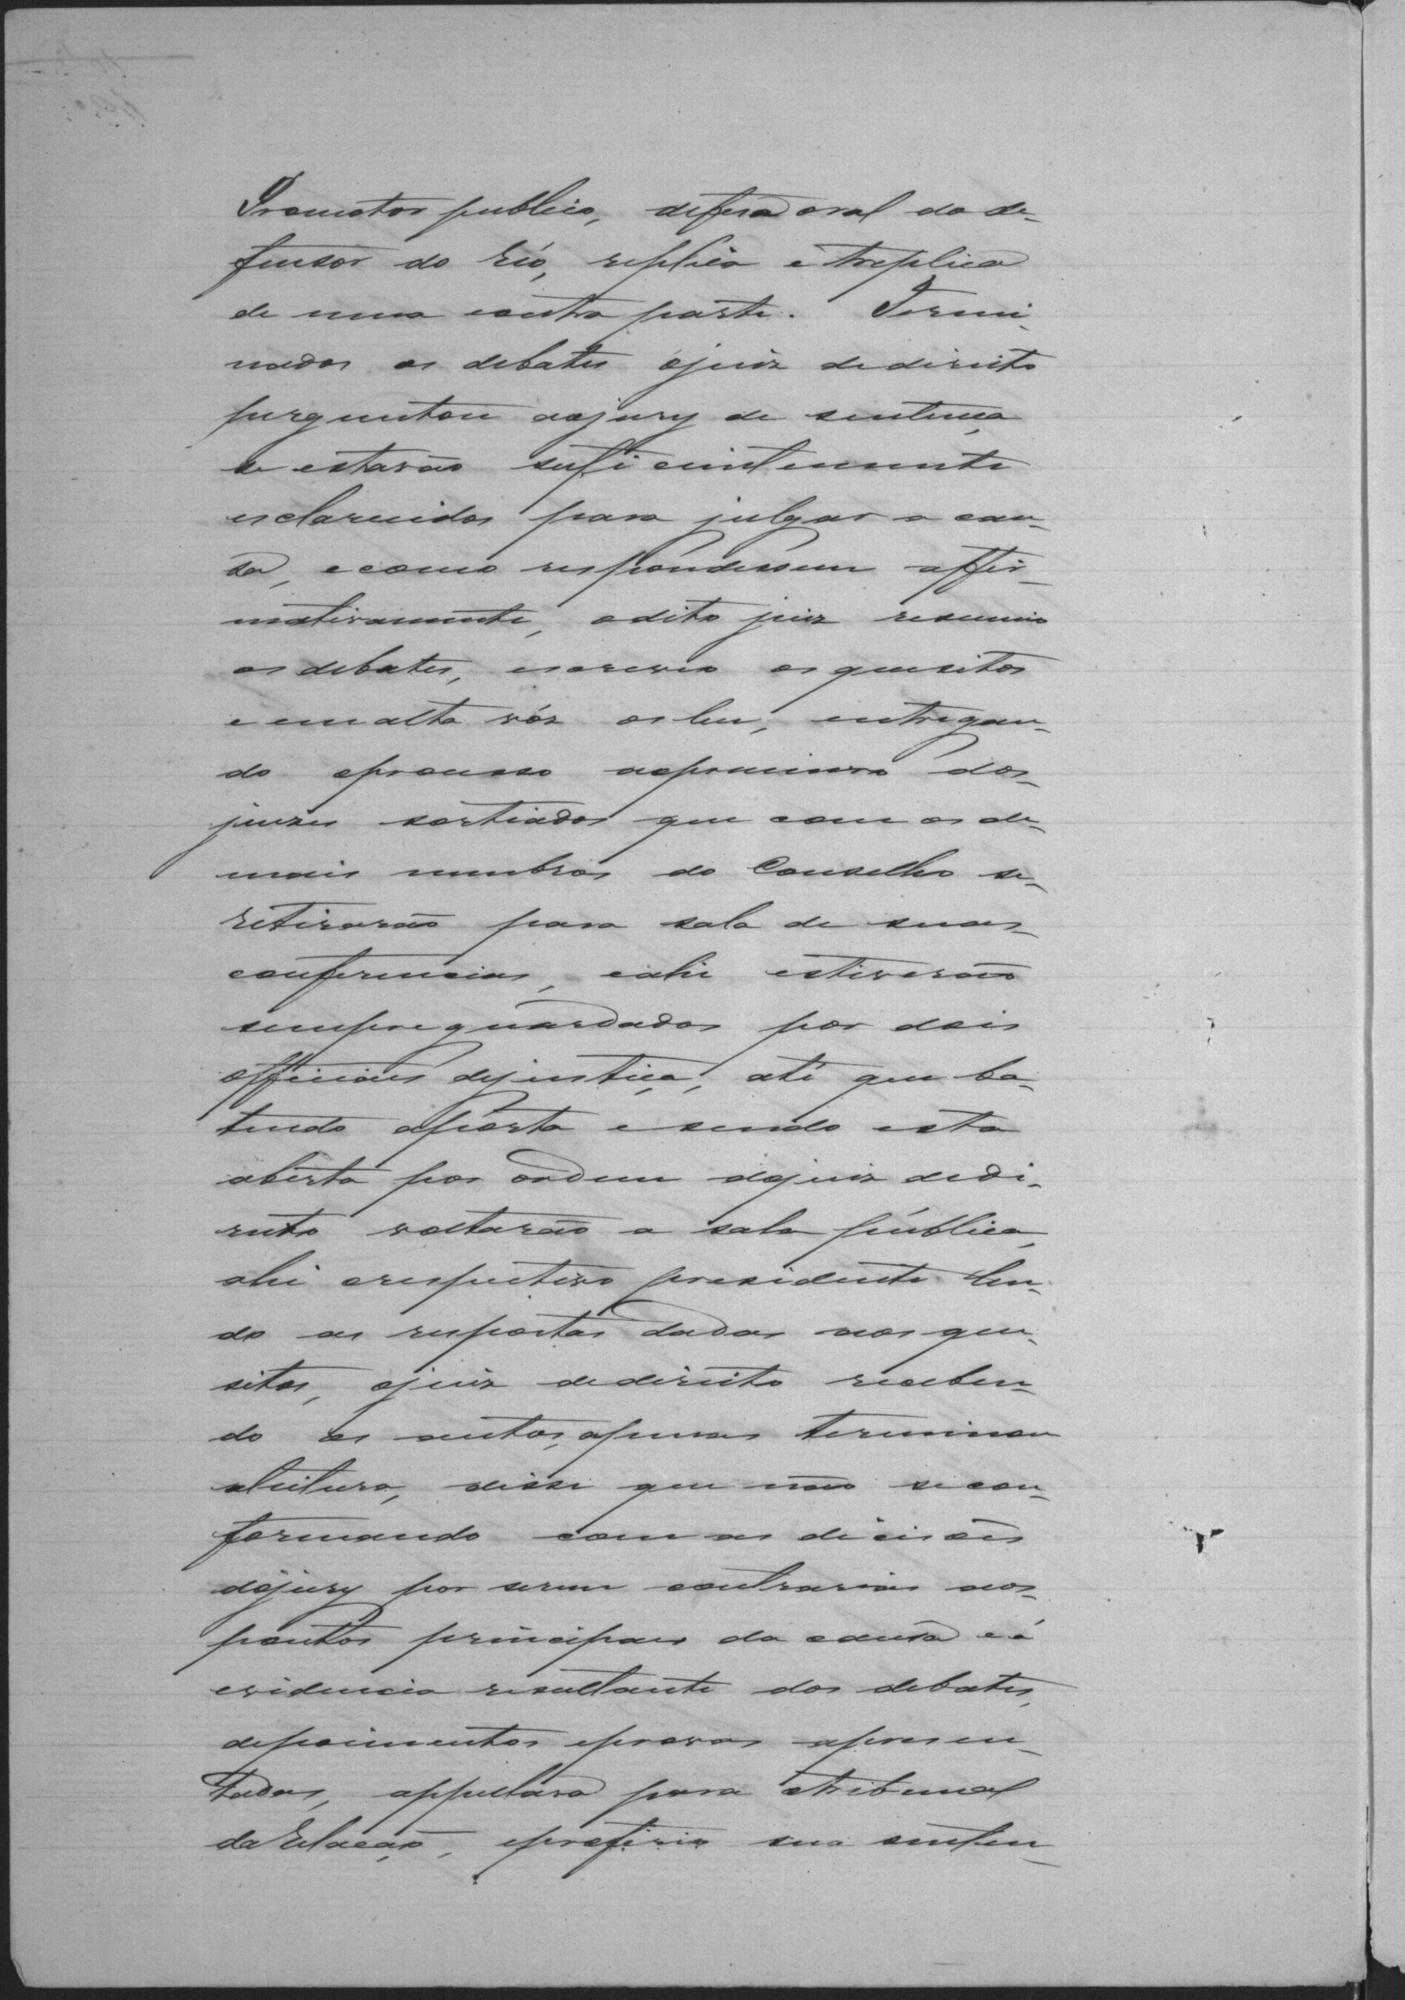 Promotor publico, defesa oral do de-
fensor do réo, replica e treplica
de uma e outra parte. Termi-
nados os debates o juiz de direito
perguntou ao jury de sentença
se estavão sufficientemente
esclarecidos para julgar a cau-
sa, e como respondessem affir-
mativamente, o dito juiz resumio
os debates, escreveo os quesitos
e em alta vóz os leu, entregan-
do o processo ao primeiro dos
juizes sorteados que com os de-
mais membros do Conselho se
retirarão para sala de suas
conferencias, e ahi estiverão
sempre guardados por dois
officiaes de justiça, até que ba-
tendo a porta e sendo esta
aberta por ordem do juiz de di-
reito voltarão a sala pública,
ahi o respectivo presidente len-
do as respostas dadas aos que-
sitos, o juiz de direito receben-
do os autos, apenas terminou
a leitura, disse que não se con-
formando com as decisões
do jury por serem contrarias aos
pontos principaes da causa e á
evidencia resultante dos debates,
depoimentos e provas apresen-
tadas, appellava para o tribunal
da Relação, e proferio sua senten-